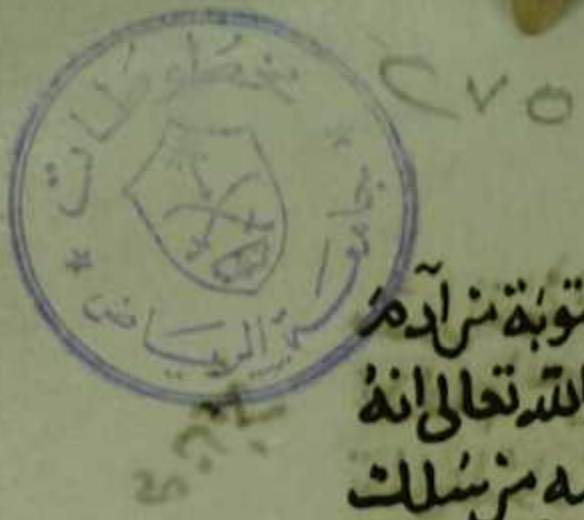 مخطوطات
٢٧٥
جامعة الرياض
توبة من آدم
الله تعالى انه
من سلك